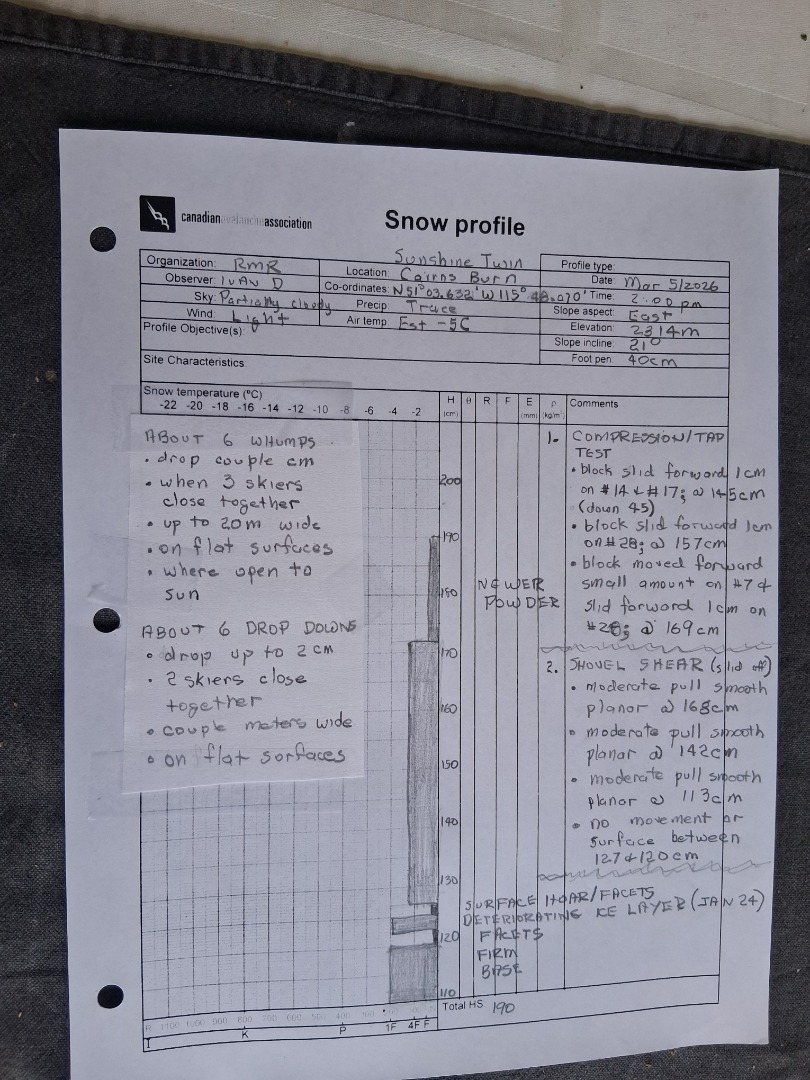 canadian avalanche association
Snow profile
Organization: RMR
Observer: IVAN D
Sky: Partially cloudy
Wind: Light
Profile Objective(s):
Sunshine Twin
Location: Cairns Burn
Co-ordinates: N51°03.632' W115° 48.070'
Precip: Trace
Air temp: Est -5C
Profile type:
Date: Mar 5/2026
Time: 2:00 pm
Slope aspect: East
Elevation: 2314m
Slope incline: 21°
Foot pen: 40cm
Site Characteristics
Snow temperature (°C)
-22 -20 -18 -16 -14 -12 -10 -8 -6 -4 -2
H (cm) θ R F E (mm) ρ (kg/m³) Comments
ABOUT 6 WHUMPS
• drop couple cm
• when 3 skiers
close together
• up to 20m wide
• on flat surfaces
• where open to
sun
ABOUT 6 DROP DOWNS
• drop up to 2 cm
• 2 skiers close
together
• couple meters wide
• on flat surfaces
200
190
180
170
160
150
140
130
120
110
NEWER
POWDER
1. COMPRESSION/TAP
TEST
• block slid forward 1cm
on #14 & #17; @ 145cm
(down 45)
• block slid forward 1cm
on #28; @ 157cm
• block moved forward
small amount on #7 &
slid forward 1cm on
@ 169cm
2. SHOVEL SHEAR (slid off)
• moderate pull smooth
planor @ 168cm
• moderate pull smooth
planar @ 142cm
• moderate pull smooth
planar @ 113cm
• no movement or
surface between
127 & 120cm
SURFACE HOAR/FACETS
DETERIORATING ICE LAYER (JAN 24)
FACETS
FIRM
BASE
Total HS 190
R 1100 1000 900 800 700 600 500 400 300
I K P 1F 4F F